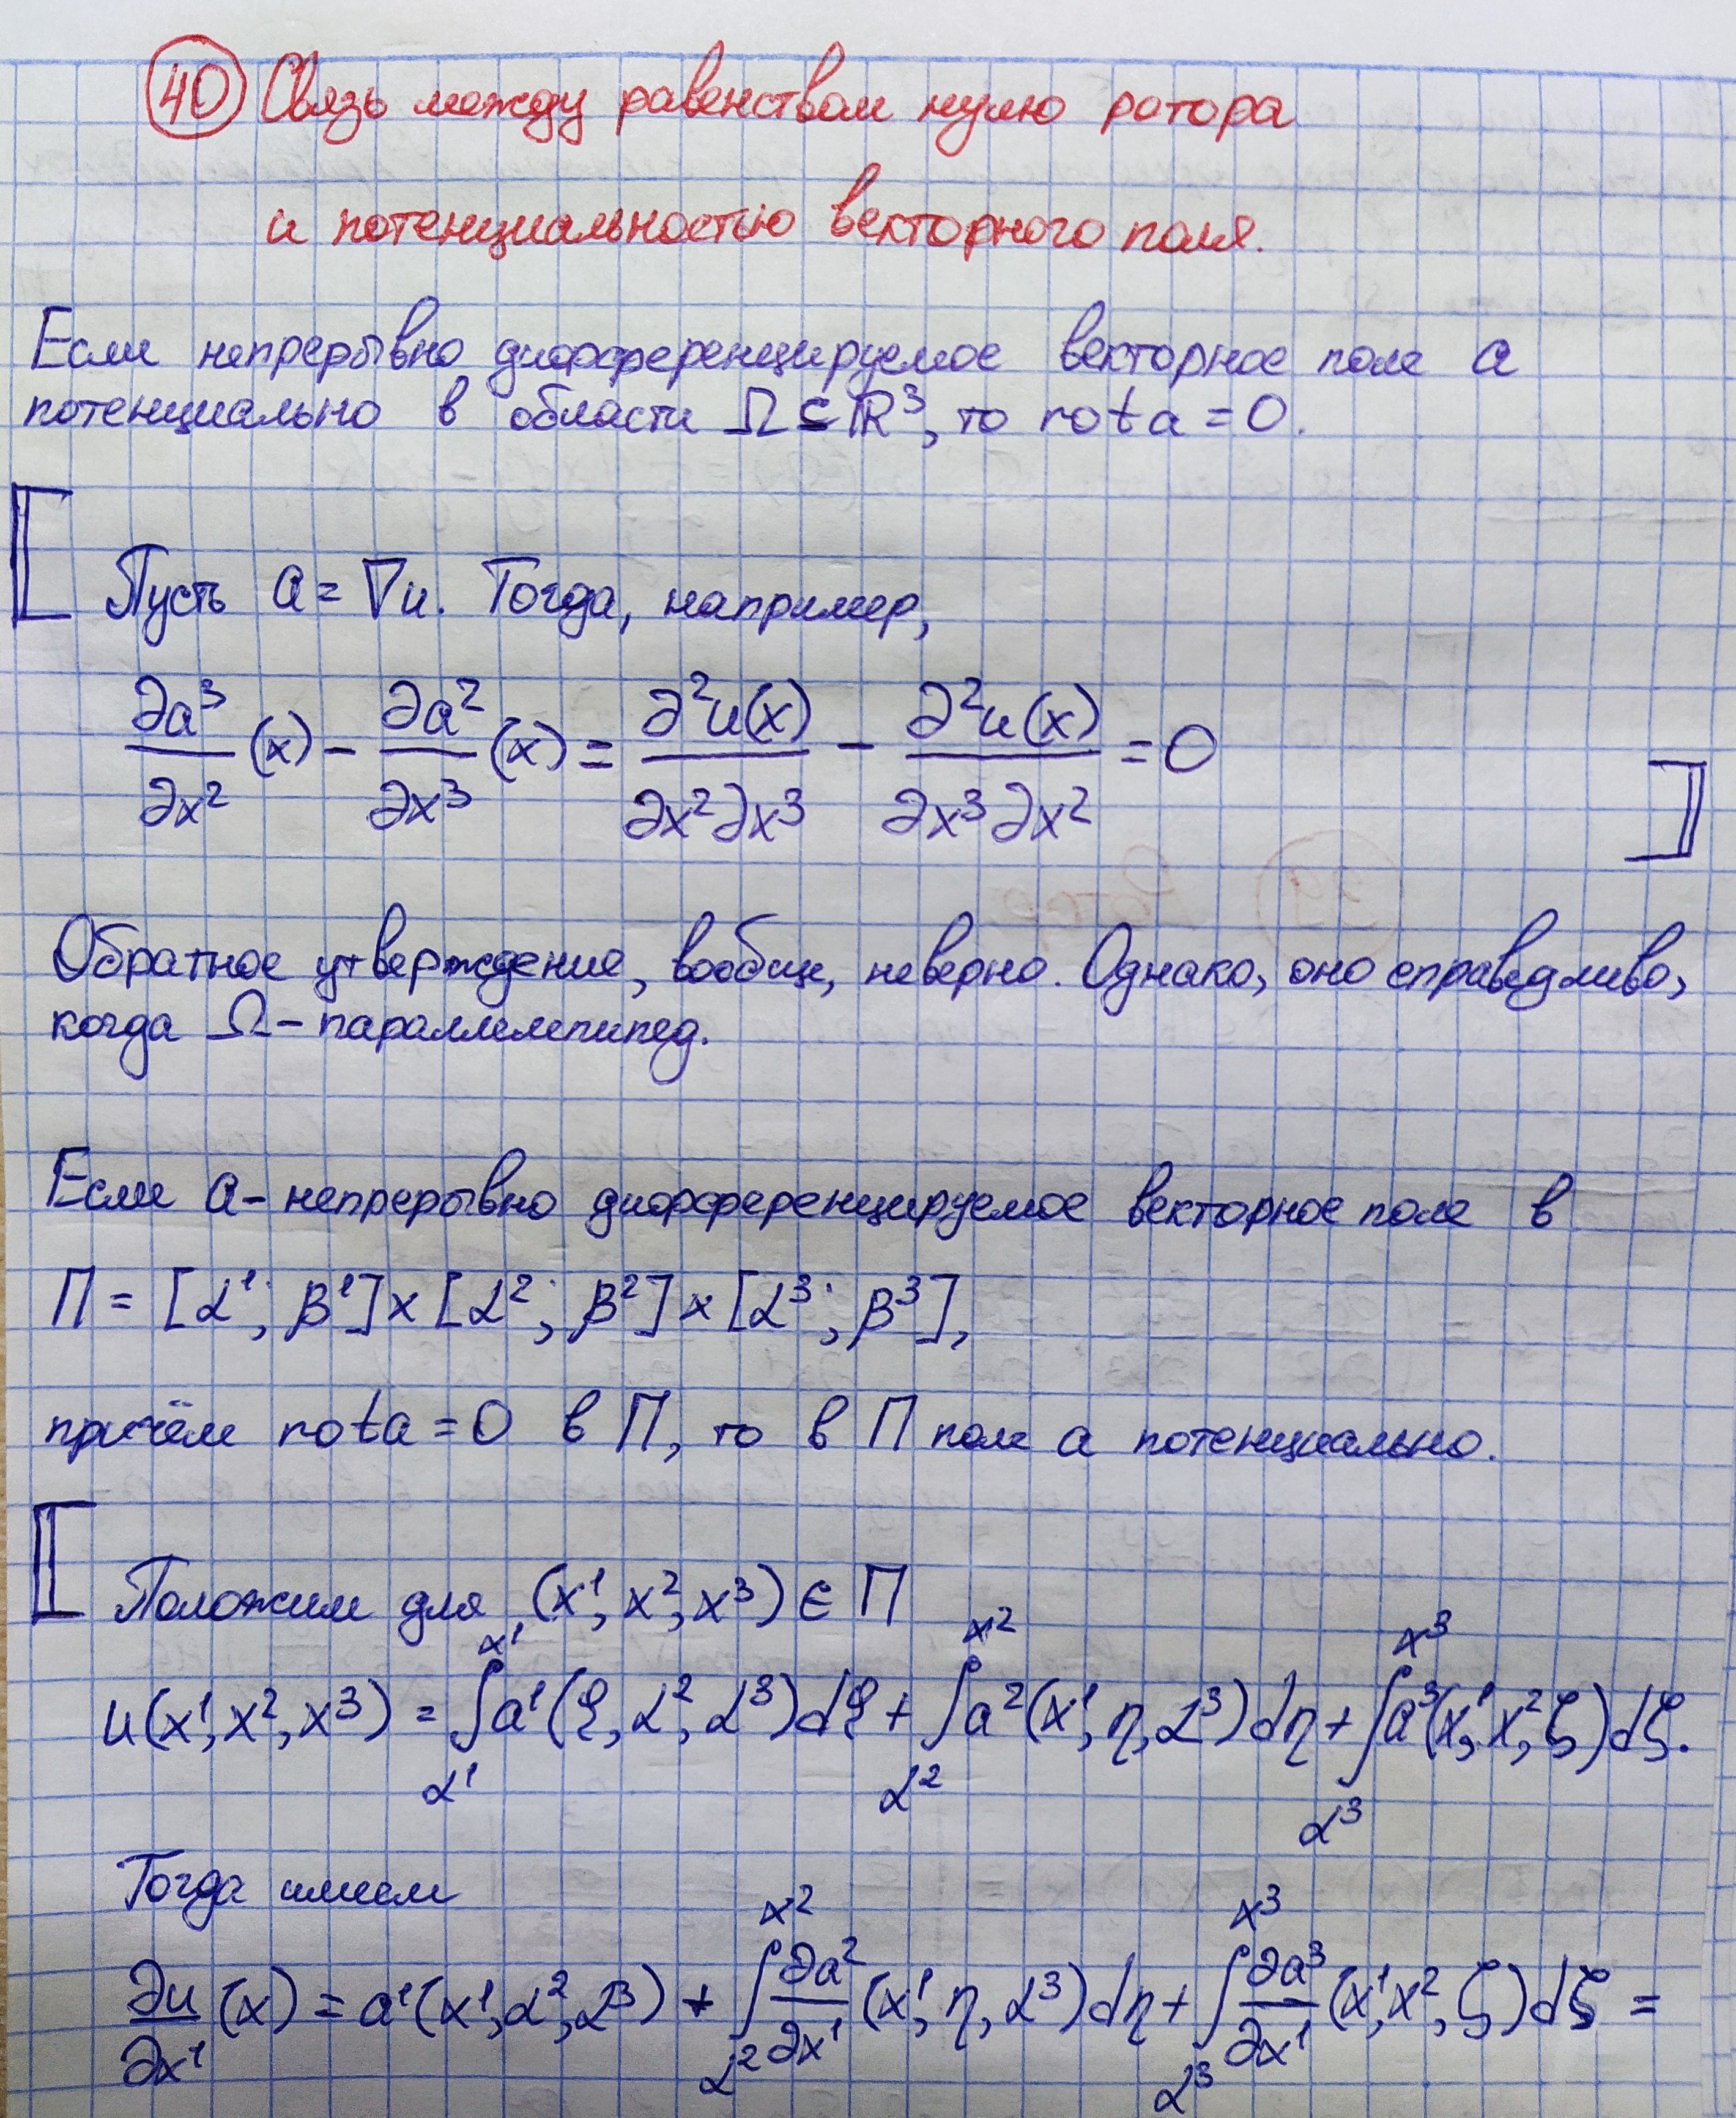 40 Связь между равенством нулю ротора
и потенциальностью векторного поля.
Если непрерывно дифференцируемое векторное поле a
потенциально в области Ω ⊆ ℝ³, то rot a = 0.
Пусть a = ∇u. Тогда, например,
∂a³/∂x² (x) − ∂a²/∂x³ (x) = ∂²u(x)/∂x²∂x³ − ∂²u(x)/∂x³∂x² = 0
Обратное утверждение, вообще, неверно. Однако, оно справедливо,
когда Ω – параллелепипед.
Если a – непрерывно дифференцируемое векторное поле в
П = [α¹; β¹] × [α²; β²] × [α³; β³],
причём rot a = 0 в П, то в П поле a потенциально.
Положим для (x¹, x², x³) ∈ П
u(x¹, x², x³) = ∫_{α¹}^{x¹} a¹(ξ, α², α³)dξ + ∫_{α²}^{x²} a²(x¹, η, α³)dη + ∫_{α³}^{x³} a³(x¹, x², ζ)dζ.
Тогда имеем
∂u/∂x¹ (x) = a¹(x¹, α², α³) + ∫_{α²}^{x²} ∂a²/∂x¹ (x¹, η, α³)dη + ∫_{α³}^{x³} ∂a³/∂x¹ (x¹, x², ζ)dζ =